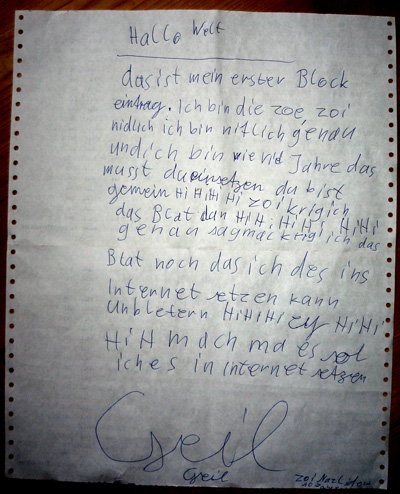 Hallo Welt
das ist mein erster Block
eintrag. Ich bin die zoe, zoi
nidlich ich bin nitlich genau
und ich bin wie vil Jahre das
musst du einsetzen du bist
gemein Hi Hi Hi Hi zoi krigich
das Blat dan Hi Hi, Hi Hi, Hi Hi
genau sagmackrig ich das
Blat noch das ich des ins
Internet setzen kann
Unbletern Hi Hi Hi ey Hi Hi
Hi H mach ma es sol
iches in internet setzen
Geil
Geil
zoi